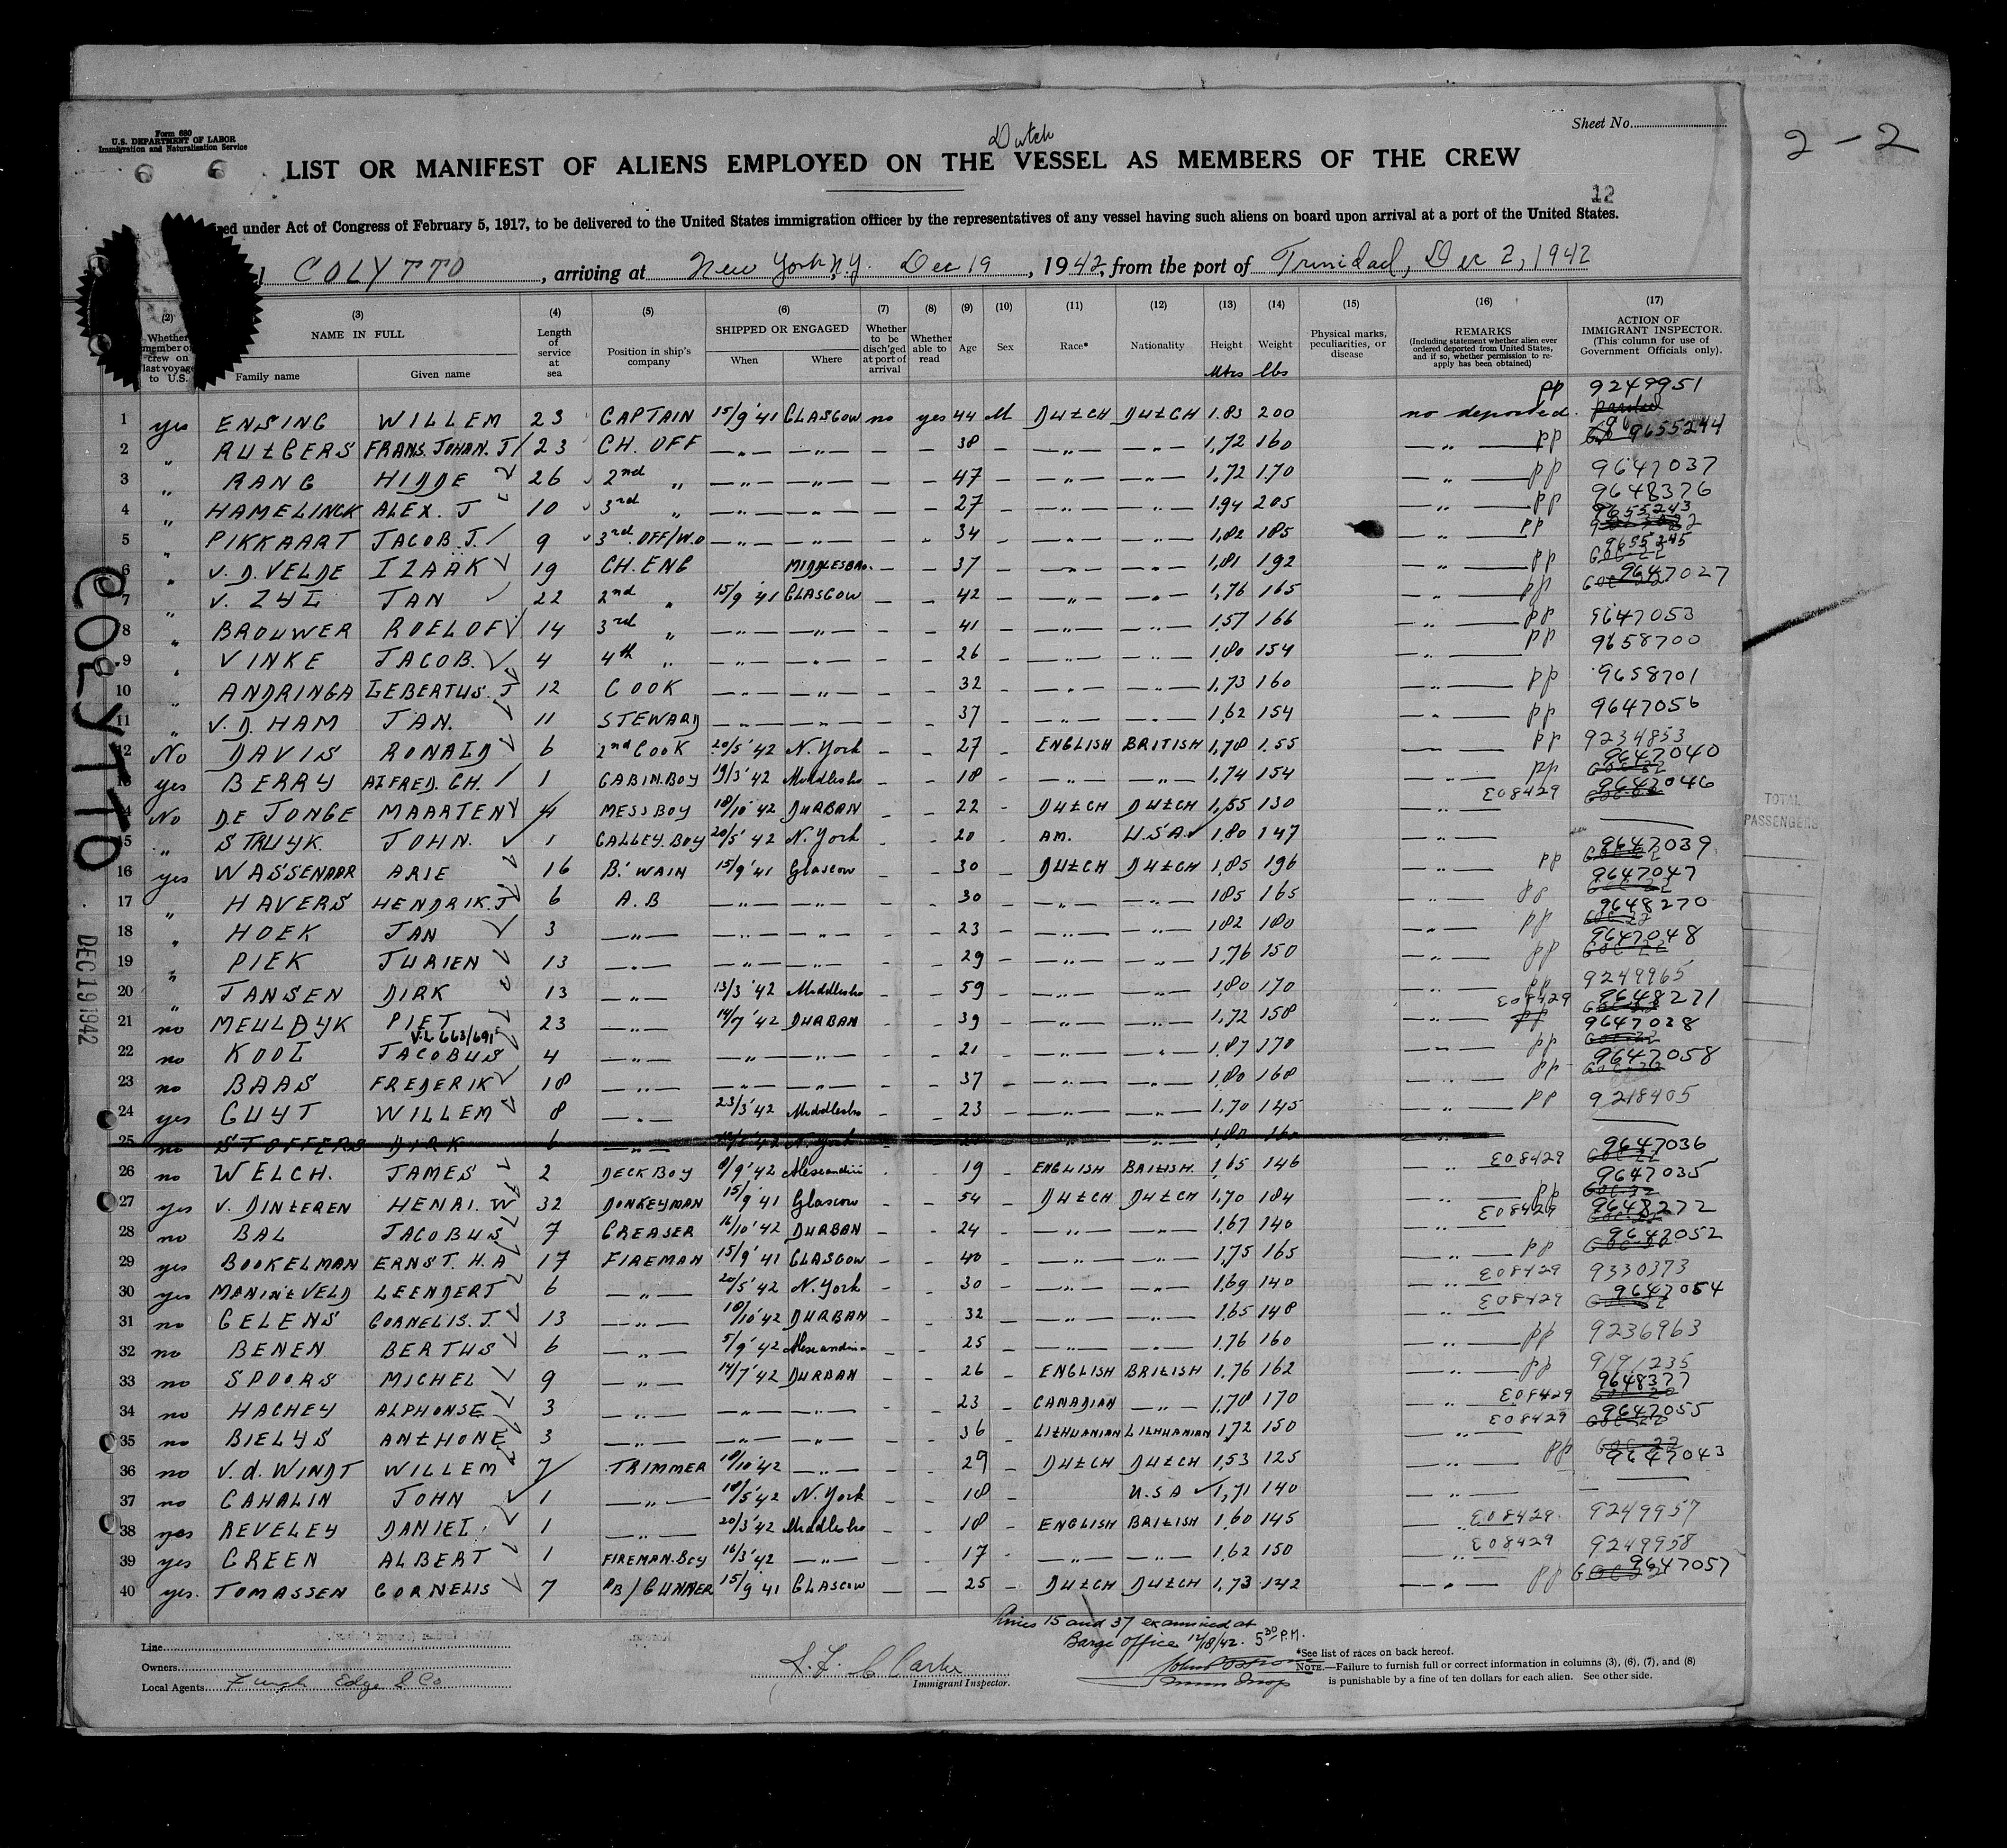 Form 680
U.S. DEPARTMENT OF LABOR
Immigration and Naturalization Service
Sheet No.
2 - 2
Dutch
LIST OR MANIFEST OF ALIENS EMPLOYED ON THE VESSEL AS MEMBERS OF THE CREW
12
under Act of Congress of February 5, 1917, to be delivered to the United States immigration officer by the representatives of any vessel having such aliens on board upon arrival at a port of the United States.
COLYTTO, arriving at New York, N.Y. Dec 19, 1942, from the port of Trinidad, Dec 2, 1942
(2) (3) (4) (5) (6) (7) (8) (9) (10) (11) (12) (13) (14) (15) (16) (17)
Whether member of crew on last voyage to U.S. NAME IN FULL Family name Given name Length of service at sea Position in ship's company SHIPPED OR ENGAGED When Where Whether to be disch'ged at port of arrival Whether able to read Age Sex Race* Nationality Height Weight Physical marks, peculiarities, or disease REMARKS (Including statement whether alien ever ordered deported from United States, and if so, whether permission to re-apply has been obtained) ACTION OF IMMIGRANT INSPECTOR. (This column for use of Government Officials only).
Mtrs lbs
1 yes ENSING WILLEM 23 CAPTAIN 15/9 '41 GLASGOW no yes 44 M DUTCH DUTCH 1.83 200 no deported. pp 9249951
2 " RUTGERS FRANS. JOHAN. J 23 CH. OFF —"— —"— — — 38 — —"— —"— 1,72 160 —"— pp 9655244
3 " RANG HIDDE 26 2nd " —"— —"— — — 47 — —"— —"— 1,72 170 —"— pp 9647037
4 " HAMELINCK ALEX. J 10 3rd " —"— —"— — — 27 — —"— —"— 1.94 205 —"— pp 9648376
5 " PIKKAART JACOB. J. 9 3rd. OFF/W.O —"— —"— — — 34 — —"— —"— 1,82 185 —"— pp 9655243
6 " V. D. VELDE IZAAK 19 CH. ENG MIDDLESBRO. — — 37 — —"— —"— 1,81 192 —"— pp 9655245
7 " V. ZYL JAN 22 2nd " 15/9 '41 GLASGOW — — 42 — —"— —"— 1,76 165 —"— pp 9647027
8 " BROUWER ROELOF 14 3rd " —"— —"— — — 41 — —"— —"— 1.57 166 —"— pp 9647053
9 " VINKE JACOB. 4 4th " —"— —"— — — 26 — —"— —"— 1.80 154 —"— pp 9658700
10 " ANDRINGA LEBERTUS. J 12 COOK —"— —"— — — 32 — —"— —"— 1,73 160 —"— pp 9658701
11 " V. D. HAM JAN. 11 STEWARD —"— —"— — — 37 — —"— —"— 1,62 154 —"— pp 9647056
12 No DAVIS RONALD 6 2nd COOK 20/5 '42 N. York — — 27 — ENGLISH BRITISH 1,78 155 —"— pp 9234853
13 yes BERRY ALFRED. CH. 1 CABIN. BOY 19/3 '42 Middlesbro — — 18 — —"— —"— 1,74 154 —"— pp 9647040
14 No DE JONGE MAARTEN 4 MESS BOY 18/10 '42 DURBAN — — 22 — DUTCH DUTCH 1,55 130 —"— E08429 9647046
15 " STRUYK. JOHN. 1 GALLEY. BOY 20/5 '42 N. York — — 20 — AM. U.S.A. 1.80 147 —"—
16 yes WASSENAAR ARIE 16 B. WAIN 15/9 '41 Glascow — — 30 — DUTCH DUTCH 1,85 196 —"— pp 9647039
17 " HAVERS HENDRIK. J 6 A.B —"— —"— — — 30 — —"— —"— 185 165 —"— pp 9647047
18 " HOEK JAN 3 —"— —"— —"— — — 23 — —"— —"— 182 180 —"— pp 9648270
19 " PIEK JURIEN 13 —"— —"— —"— — — 29 — —"— —"— 1,76 150 —"— pp 9647048
20 " JANSEN DIRK 13 —"— 13/3 '42 Middlesbro — — 59 — —"— —"— 1,80 170 —"— pp 9249965
21 no MEULDYK PIET 23 —"— 14/7 '42 DURBAN — — 39 — —"— —"— 1,72 158 —"— E08429 9648271
V.L 663/691
22 no KOOL JACOBUS 4 —"— —"— —"— — — 21 — —"— —"— 1,87 170 —"— pp 9647038
23 no BAAS FREDERIK 18 —"— —"— —"— — — 37 — —"— —"— 1,80 168 —"— pp 9647058
24 yes GUYT WILLEM 8 —"— 23/3 '42 Middlesbro — — 23 — —"— —"— 1,70 145 —"— pp 9218405
25 no STOFFERS DIRK 6 —"— N. York
26 no WELCH. JAMES 2 DECK BOY 8/9 '42 Alexandria 19 — ENGLISH BRITISH. 1,65 146 —"— E08429 9647036
27 yes V. DINTEREN HENRI. W 32 DONKEYMAN 15/9 '41 Glascow — — 54 — DUTCH DUTCH 1,70 184 —"— pp 9647035
28 no BAL JACOBUS 7 GREASER 16/10 '42 DURBAN — — 24 — —"— —"— 1.67 140 —"— E08429 9648272
29 yes BOOKELMAN ERNST. H. A 17 FIREMAN 15/9 '41 GLASGOW — — 40 — —"— —"— 1,75 165 —"— pp 9647052
30 yes MANINTVELD LEENDERT 6 —"— 20/5 '42 N. York — — 30 — —"— —"— 1,69 140 —"— E08429 9330373
31 no GELENS CORNELIS. J. 13 —"— 18/10 '42 DURBAN — — 32 — —"— —"— 1.65 148 —"— E08429 9647054
32 no BENEN BERTUS 6 —"— 5/9 '42 Alexandria — — 25 — —"— —"— 1.76 160 —"— pp 9236963
33 no SPOORS MICHEL 9 —"— 14/7 '42 DURBAN — — 26 — ENGLISH BRITISH 1,76 162 —"— pp 9191235
34 no HACHEY ALPHONSE 3 —"— —"— —"— — — 23 — CANADIAN —"— 1,78 170 —"— E08429 9648377
35 no BIELYS ANTHONE 3 —"— —"— —"— — — 36 — LITHUANIAN LITHUANIAN 1,72 150 —"— E08429 9647055
36 no V. d. WINDT WILLEM 7 TRIMMER 18/10 '42 —"— — — 29 — DUTCH DUTCH 1,53 125 —"— pp 9647043
37 no CAHALIN JOHN 1 —"— 18/5 '42 N. York — — 18 — U.S.A 1,71 140 —"— —
38 yes REVELEY DANIEL 1 —"— 20/3 '42 Middlesbro — — 18 — ENGLISH BRITISH 1.60 145 —"— E08429. 9249957
39 yes GREEN ALBERT 1 FIREMAN. BOY 16/3 '42 —"— — — 17 — —"— —"— 1,62 150 —"— E08429 9249958
40 yes. TOMASSEN CORNELIS 7 AB/GUNNER 15/9 41 GLASCOW — — 25 — DUTCH DUTCH 1,73 142 —"— pp 9647057
COLYTTO
DEC 19 1942
TOTAL
PASSENGERS
Lines 15 and 37 examined at
Barge Office 12/18/42. 5 30 P.M.
Line
Owners
Local Agents Edge & Co
Immigrant Inspector.
*See list of races on back hereof.
NOTE.—Failure to furnish full or correct information in columns (3), (6), (7), and (8)
is punishable by a fine of ten dollars for each alien. See other side.